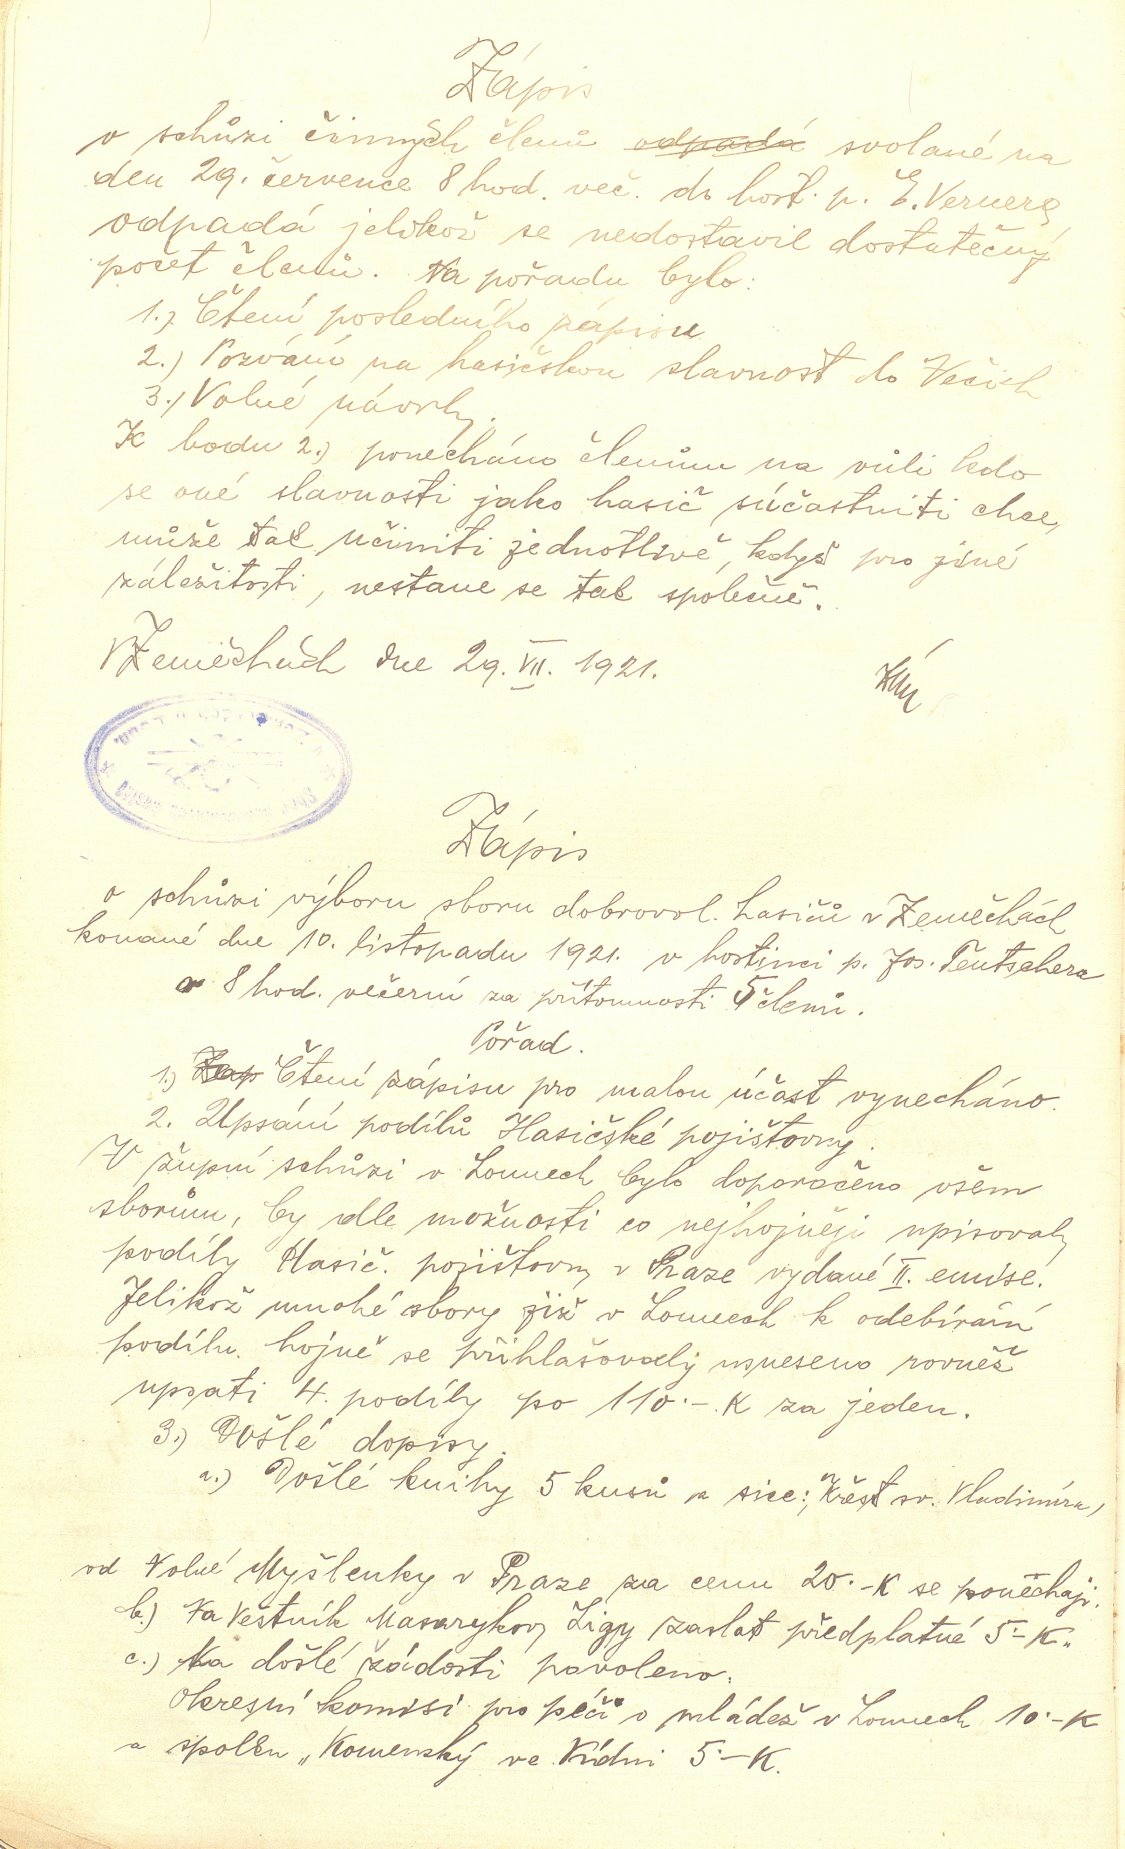 Zápis
o schůzi činných členů odpadá svolané na
den 29. července 8 hod. več. do host. p. E. Vernera
odpadá jelikož se nedostavil dostatečný
počet členů. Na pořadu bylo:
1.) Čtení posledního zápisu
2.) Pozvání na hasičskou slavnost do
3.) Volné návrhy.
K bodu 2.) ponecháno členům na vůli kdo
se oné slavnosti jako hasič súčastniti chce,
může tak učiniti jednotlivě, když pro jiné
záležitosti, nestane se tak společně.
V Zeměchách dne 29. VII. 1921.
Zápis
o schůzi výboru sboru dobrovol. hasičů v Zeměchách
konané dne 10. listopadu 1921. v hostinci p. Jos. Teutschera
v 8 hod. večerní za přítomnosti 5 členů.
Pořad.
1.) Zap Čtení zápisu pro malou účast vynecháno.
2. Upsání podílů Hasičské pojišťovny.
V župní schůzi v Lounech bylo doporočeno všem
sborům, by dle možnosti co nejhojněji upisovaly
podíly Hasič. pojišťovny v Praze vydané II. emise.
Jelikož mnohé sbory již v Lounech k odebírání
podílu hojně se přihlašovaly usneseno rovněž
upsati 4. podíly po 110.-. K za jeden.
3.) Došlé dopisy.
a.) Došlé knihy 5 kusů a sice: Křest sv. Vladimíra,
od Volné Myšlenky v Praze za cenu 20.-K se ponechají.
b.) Na Věstník Masarykovy Ligy zaslat předplatné 5-K.
c.) Na došlé žádosti povoleno.
Okresní komisí pro péči o mládež v Lounech 10.-K
a spolku „Komenský ve Vídni 5.-K.